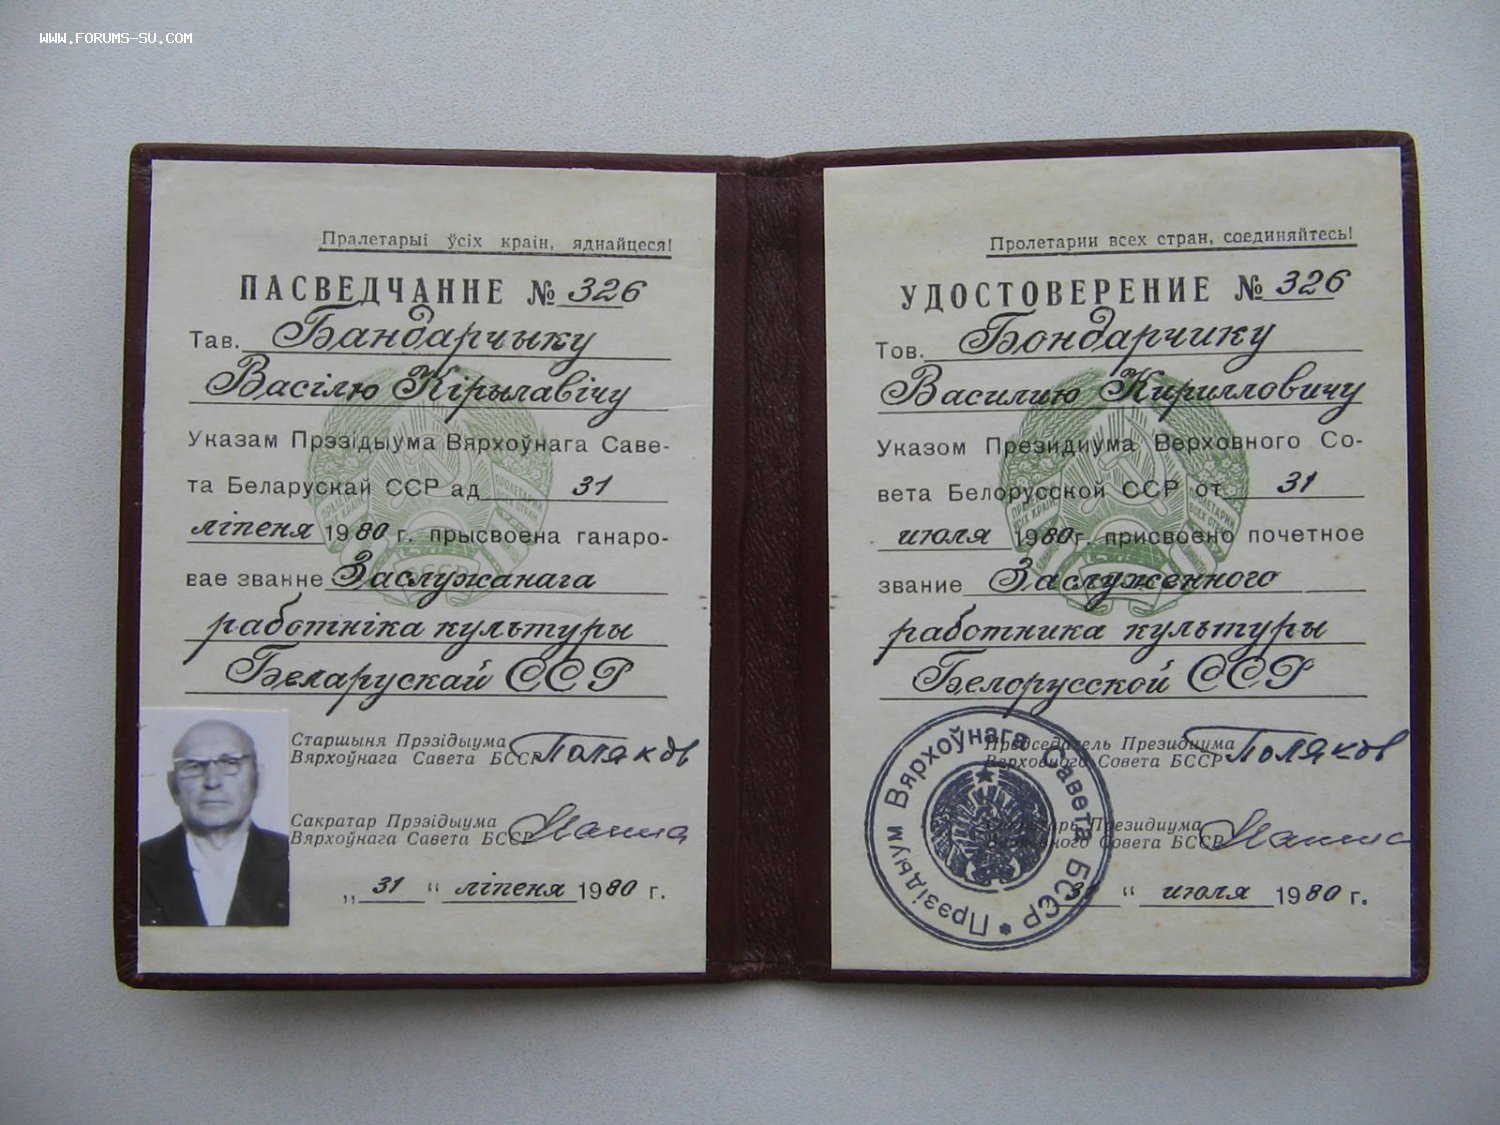 WWW.FORUMS-SU.COM
Пралетарыі ўсіх краін, яднайцеся!
ПАСВЕДЧАННЕ № 326
Тав. Бандарчыку
Васілю Кірылавічу
Указам Прэзідыума Вярхоўнага Саве-
та Беларускай ССР ад 31
ліпеня 1980 г. прысвоена ганаро-
вае званне Заслужанага
работніка культуры
Беларускай ССР
Старшыня Прэзідыума
Вярхоўнага Савета БССР Поляков
Сакратар Прэзідыума
Вярхоўнага Савета БССР
„31“ ліпеня 1980 г.
Пролетарии всех стран, соединяйтесь!
УДОСТОВЕРЕНИЕ № 326
Тов. Бондарчику
Василию Кирилловичу
Указом Президиума Верховного Со-
вета Белорусской ССР от 31
июля 1980 г. присвоено почетное
звание Заслуженного
работника культуры
Белорусской ССР
Председатель Президиума
Верховного Совета БССР Поляков
Секретарь Президиума
Верховного Совета БССР
31“ июля 1980 г.
Прэзідыум Вярхоўнага Савета БССР *